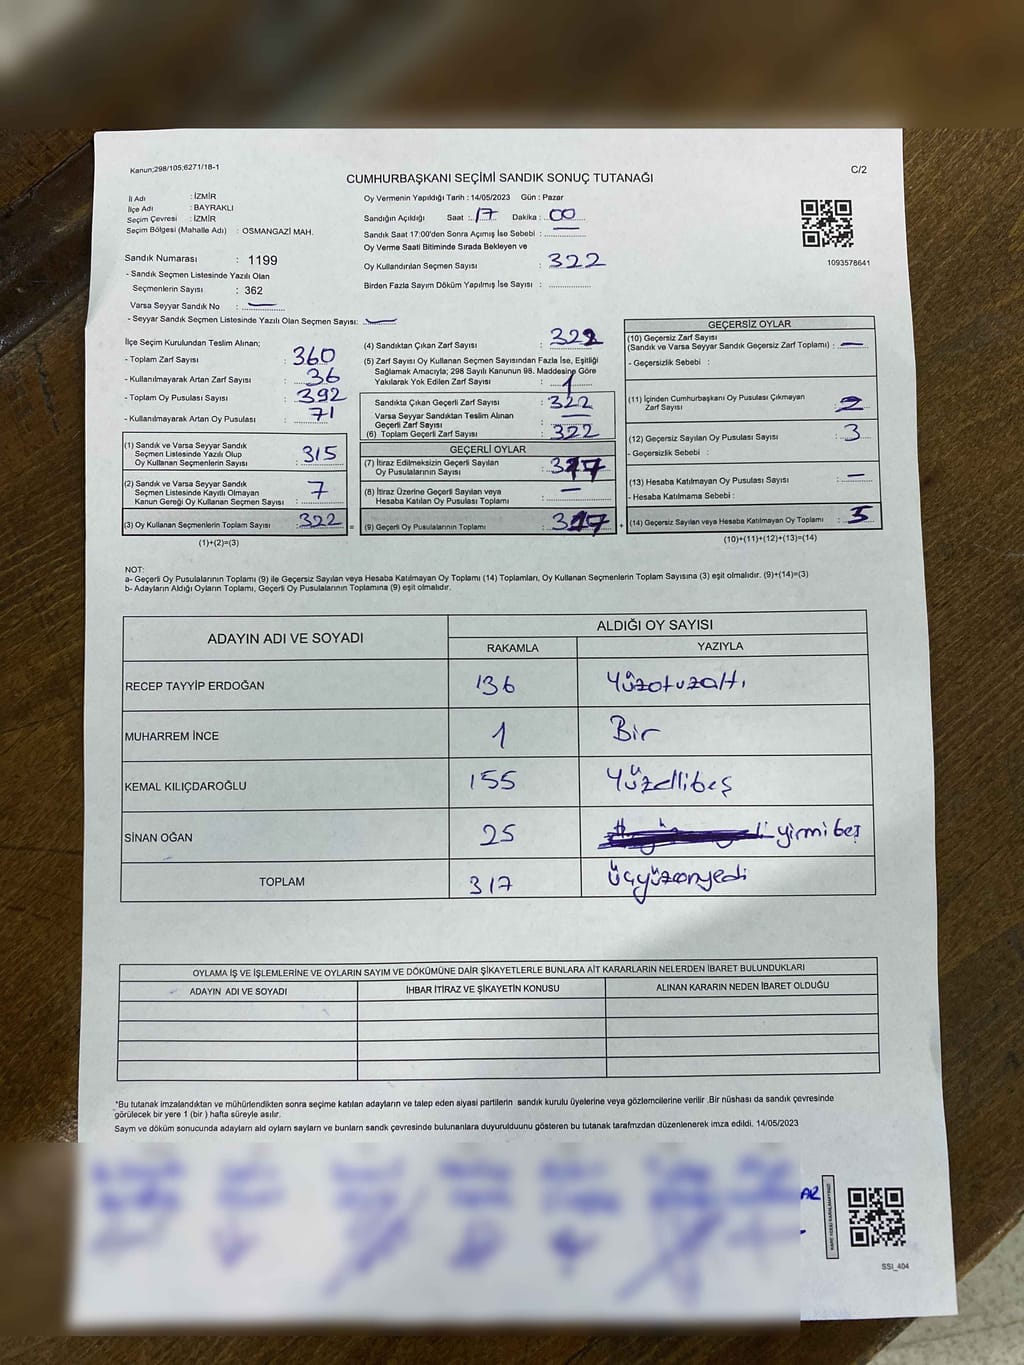 Kanun;298/105;6271/18-1
C/2
CUMHURBAŞKANI SEÇİMİ SANDIK SONUÇ TUTANAĞI
İl Adı : İZMİR
İlçe Adı : BAYRAKLI
Seçim Çevresi : İZMİR
Seçim Bölgesi (Mahalle Adı) : OSMANGAZİ MAH.
Oy Vermenin Yapıldığı Tarih : 14/05/2023 Gün : Pazar
Sandığın Açıldığı Saat : 17 Dakika : 00
Sandık Saat 17:00'den Sonra Açımış İse Sebebi :
Oy Verme Saati Bitiminde Sırada Bekleyen ve
Oy Kullandırılan Seçmen Sayısı : 322
Birden Fazla Sayım Döküm Yapılmış İse Sayısı :
1093578641
Sandık Numarası : 1199
- Sandık Seçmen Listesinde Yazılı Olan
Seçmenlerin Sayısı : 362
Varsa Seyyar Sandık No : —
- Seyyar Sandık Seçmen Listesinde Yazılı Olan Seçmen Sayısı: —
İlçe Seçim Kurulundan Teslim Alınan;
- Toplam Zarf Sayısı : 360
- Kullanılmayarak Artan Zarf Sayısı : 36
- Toplam Oy Pusulası Sayısı : 392
- Kullanılmayarak Artan Oy Pusulası : 71
(1) Sandık ve Varsa Seyyar Sandık
Seçmen Listesinde Yazılı Olup
Oy Kullanan Seçmenlerin Sayısı : 315
(2) Sandık ve Varsa Seyyar Sandık
Seçmen Listesinde Kayıtlı Olmayan
Kanun Gereği Oy Kullanan Seçmen Sayısı : 7
(3) Oy Kullanan Seçmenlerin Toplam Sayısı : 322
(1)+(2)=(3)
(4) Sandıktan Çıkan Zarf Sayısı : 322
(5) Zarf Sayısı Oy Kullanan Seçmen Sayısından Fazla İse, Eşitliği
Sağlamak Amacıyla; 298 Sayılı Kanunun 98. Maddesine Göre
Yakılarak Yok Edilen Zarf Sayısı : 1
Sandıkta Çıkan Geçerli Zarf Sayısı : 322
Varsa Seyyar Sandıktan Teslim Alınan
Geçerli Zarf Sayısı : —
(6) Toplam Geçerli Zarf Sayısı : 322
GEÇERLİ OYLAR
(7) İtiraz Edilmeksizin Geçerli Sayılan
Oy Pusulalarının Sayısı : 317
(8) İtiraz Üzerine Geçerli Sayılan veya
Hesaba Katılan Oy Pusulası Toplamı : —
= (9) Geçerli Oy Pusulalarının Toplamı : 317 +
GEÇERSİZ OYLAR
(10) Geçersiz Zarf Sayısı
(Sandık ve Varsa Seyyar Sandık Geçersiz Zarf Toplamı) : —
- Geçersizlik Sebebi :
(11) İçinden Cumhurbaşkanı Oy Pusulası Çıkmayan
Zarf Sayısı : 2
(12) Geçersiz Sayılan Oy Pusulası Sayısı : 3
- Geçersizlik Sebebi :
(13) Hesaba Katılmayan Oy Pusulası Sayısı : —
- Hesaba Katılmama Sebebi :
(14) Geçersiz Sayılan veya Hesaba Katılmayan Oy Toplamı : 5
(10)+(11)+(12)+(13)=(14)
NOT:
a- Geçerli Oy Pusulalarının Toplamı (9) ile Geçersiz Sayılan veya Hesaba Katılmayan Oy Toplamı (14) Toplamları, Oy Kullanan Seçmenlerin Toplam Sayısına (3) eşit olmalıdır. (9)+(14)=(3)
b- Adayların Aldığı Oyların Toplamı, Geçerli Oy Pusulalarının Toplamına (9) eşit olmalıdır.
ADAYIN ADI VE SOYADI ALDIĞI OY SAYISI
RAKAMLA YAZIYLA
RECEP TAYYİP ERDOĞAN 136 Yüzotuzaltı
MUHARREM İNCE 1 Bir
KEMAL KILIÇDAROĞLU 155 Yüzellibeş
SİNAN OĞAN 25 yirmi beş
TOPLAM 317 üçyüzonyedi
OYLAMA İŞ VE İŞLEMLERİNE VE OYLARIN SAYIM VE DÖKÜMÜNE DAİR ŞİKAYETLERLE BUNLARA AİT KARARLARIN NELERDEN İBARET BULUNDUKLARI
ADAYIN ADI VE SOYADI İHBAR İTİRAZ VE ŞİKAYETİN KONUSU ALINAN KARARIN NEDEN İBARET OLDUĞU
*Bu tutanak imzalandıktan ve mühürlendikten sonra seçime katılan adayların ve talep eden siyasi partilerin sandık kurulu üyelerine veya gözlemcilerine verilir .Bir nüshası da sandık çevresinde
görülecek bir yere 1 (bir ) hafta süreyle asılır.
Saym ve döküm sonucunda adayların ald oyların sayları ve bunların sandk çevresinde bulunanlara duyurulduunu gösteren bu tutanak tarafmzdan düzenlenerek imza edildi. 14/05/2023
AR
SSI_404